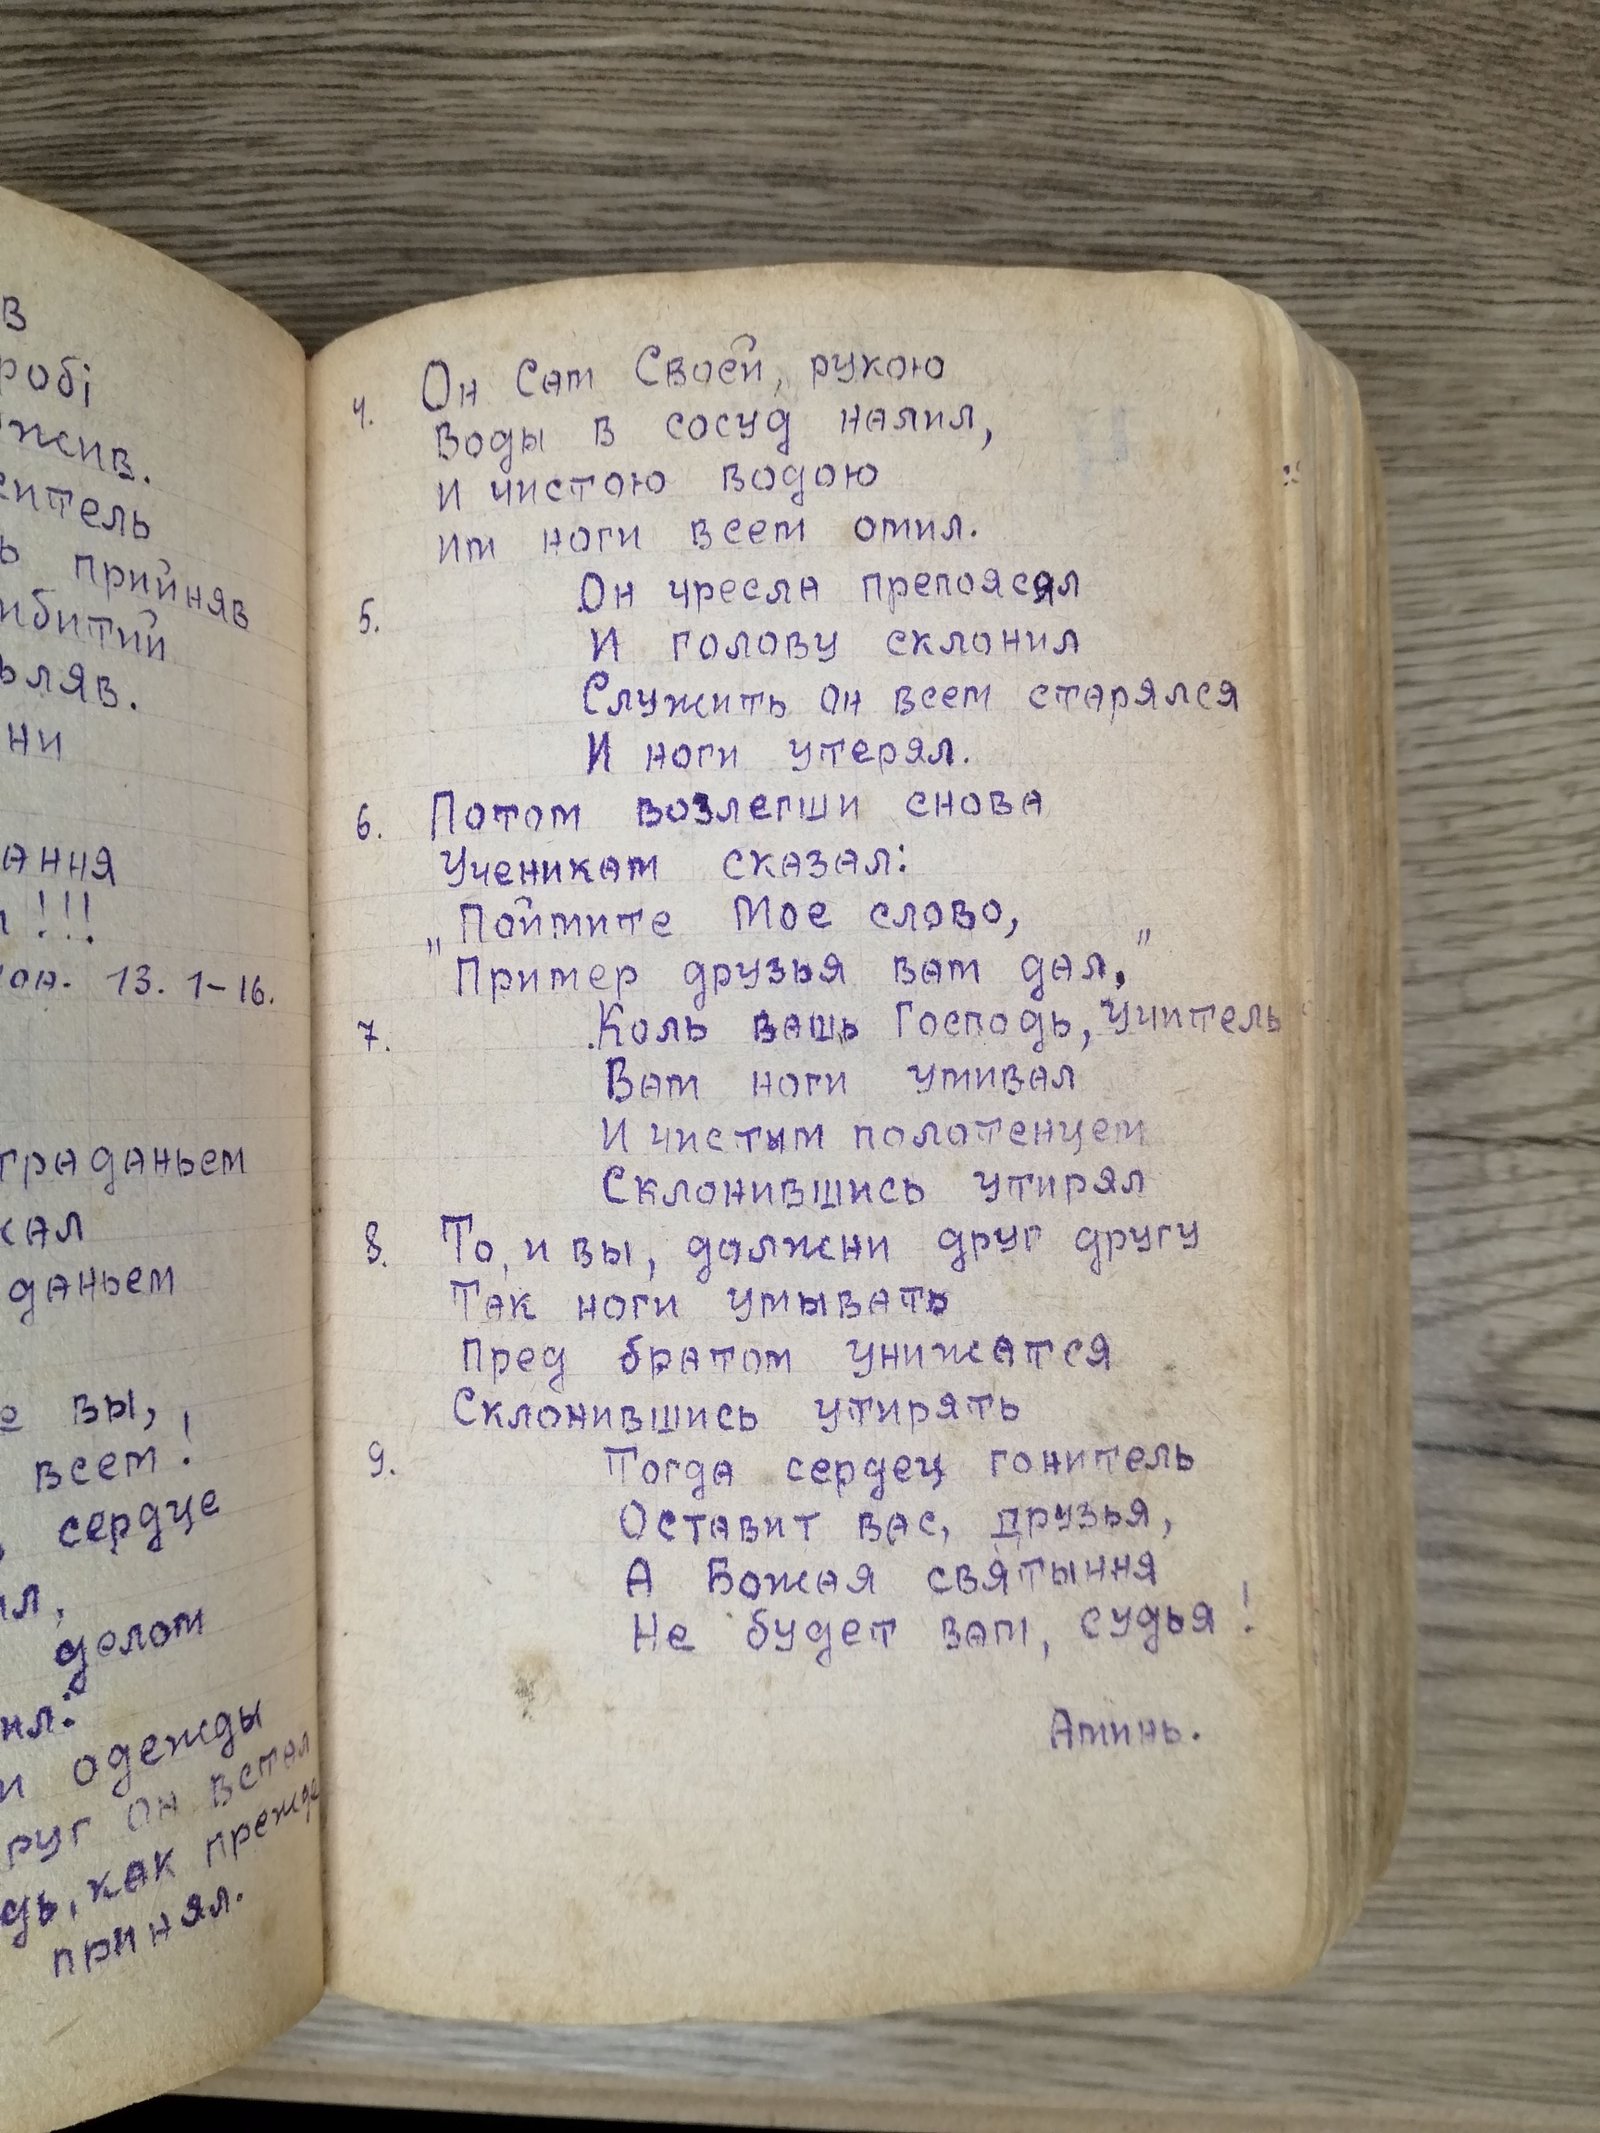 в
робі
ожив.
ситель
ь прийняв
ибитий
ьляв.
ни
ання
!!!
оа. 13. 1-16.
траданьем
кал
даньем
вы,
всем!
сердце
ил,
делом
ил:
и одежды
руг он встал
дь, как прежде
принял.
4. Он Сам Своей, рукою
воды в сосуд налил,
и чистою водою
им ноги всем омил.
5. Он чресла препоясал
И голову склонил
Служить он всем старялся
И ноги утерял.
6. Потом возлегши снова
Ученикам сказал:
„Поймите Мое слово,
"Пример друзья вам дал,"
7. Коль вашь Господь, Учитель
Вам ноги умивал
И чистым полотенцем
Склонившись утирял
8. То, и вы, должни друг другу
Так ноги умывать
Пред братом унижатся
Склонившись утирять
9. Тогда сердец гонитель
Оставит вас, друзья,
А Божая святыння
Не будет вам, судья!
Аминь.